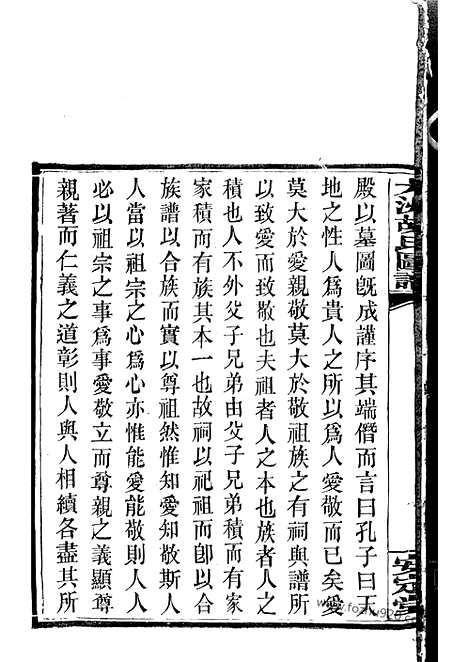 殿以墓圖旣成謹序其端僭而言曰孔子曰天
地之性人爲貴人之所以爲人愛敬而已矣愛
莫大於愛親敬莫大於敬祖族之有祠與譜所
以致愛而致敬也夫祖者人之本也族者人之
積也人不外父子兄弟由父子兄弟積而有家
家積而有族其本一也故祠以祀祖而卽以合
族譜以合族而實以尊祖然惟知愛知敬斯人
人當以祖宗之心爲心亦惟能愛能敬則人人
必以祖宗之事爲事愛敬立而尊親之義顯尊
親著而仁義之道彰則人與人相續各盡其所
氏圖譜
安定堂